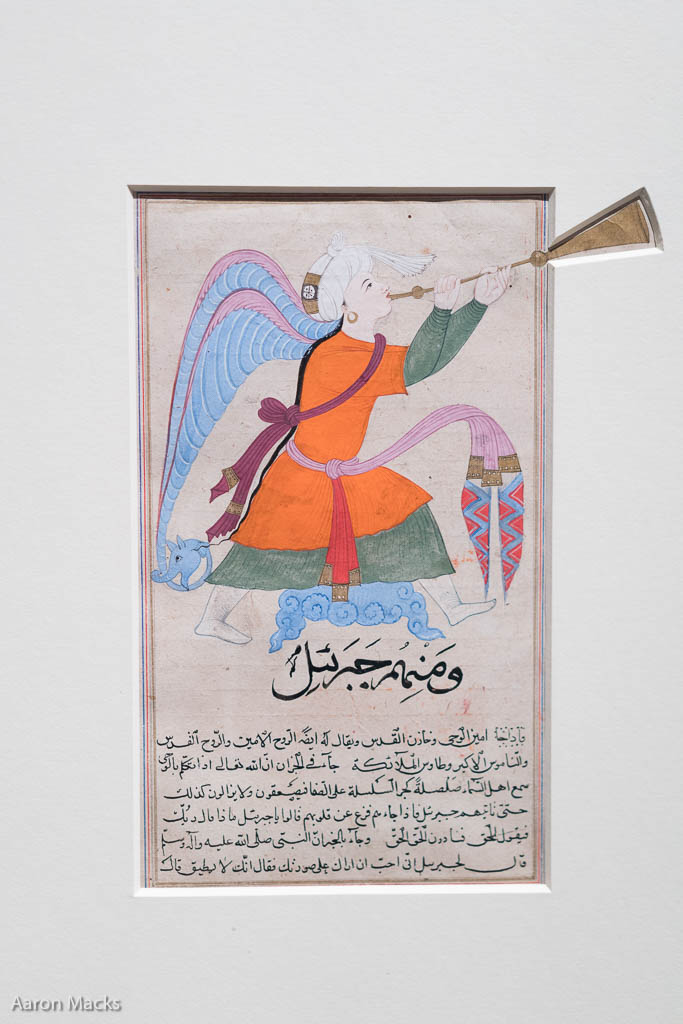 وَمنِهُم جَبرَئيل
امين الوحى وخازن القدس ويقال له ايضًا الروح الامين والروح القدس
والناموس الاكبر وطاوس الملائكة جآء فى الخبر ان الله تعالى اذا تكلم بالوحى
سمع اهل السماء صلصلة كجر السلسلة على الصفا فيصعقون ولا يزالون كذلك
حتى ياتيهم جبرئل فاذا جاءهم فزع عن قلوبهم قالوا يا جبرئل ما ذا قال ربك
فيقول الحق فينادون الحق الحق وجآء بالخبر ان النبى صلى الله عليه وآله وسلم
قال لجبرئل انى احب ان اراك على صورتك فقال انك لا تطيق قال
Aaron Macks